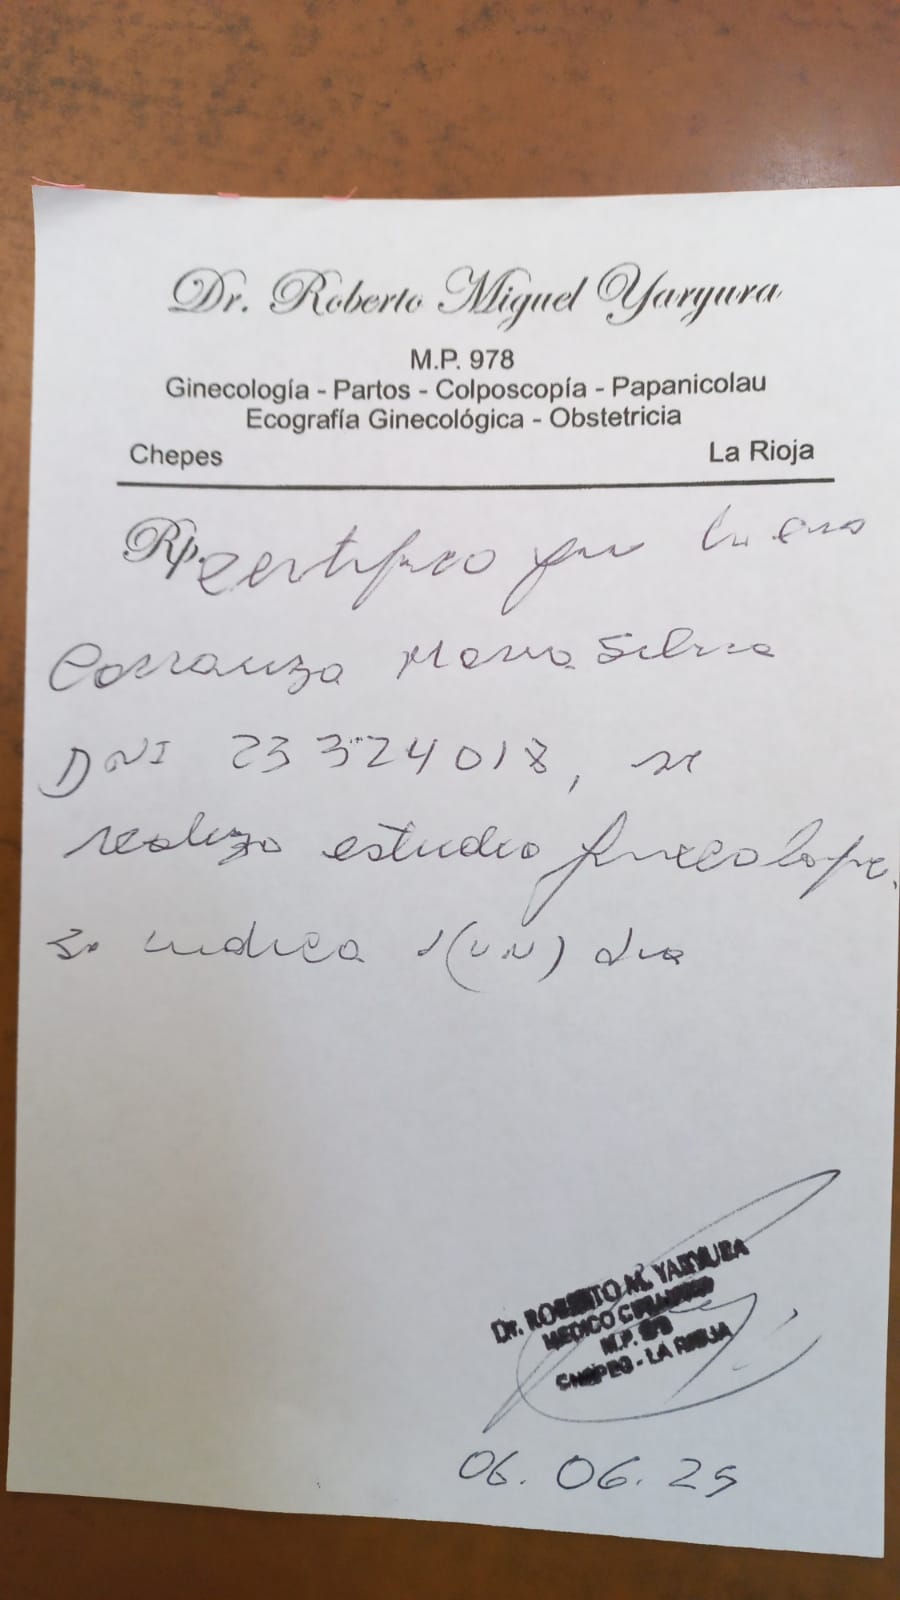 Dr. Roberto Miguel Yaryura
M.P. 978
Ginecología - Partos - Colposcopía - Papanicolau
Ecografía Ginecológica - Obstetricia
Chepes La Rioja
Rp. Certifico que
Carranza Maria Silvia
DNI 23 324 018, se
realizo estudio ginecologic.
Se indica 1 (UN) dia
Dr. ROBERTO M. YARYURA
MEDICO CIRUJANO
M.P. 978
CHEPES - LA RIOJA
06. 06. 25